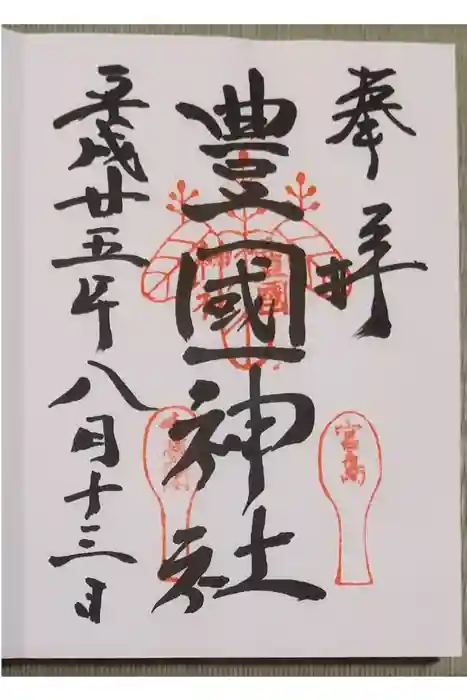 奉拝
豊國神社
平成廿五年八月十三日
宮島